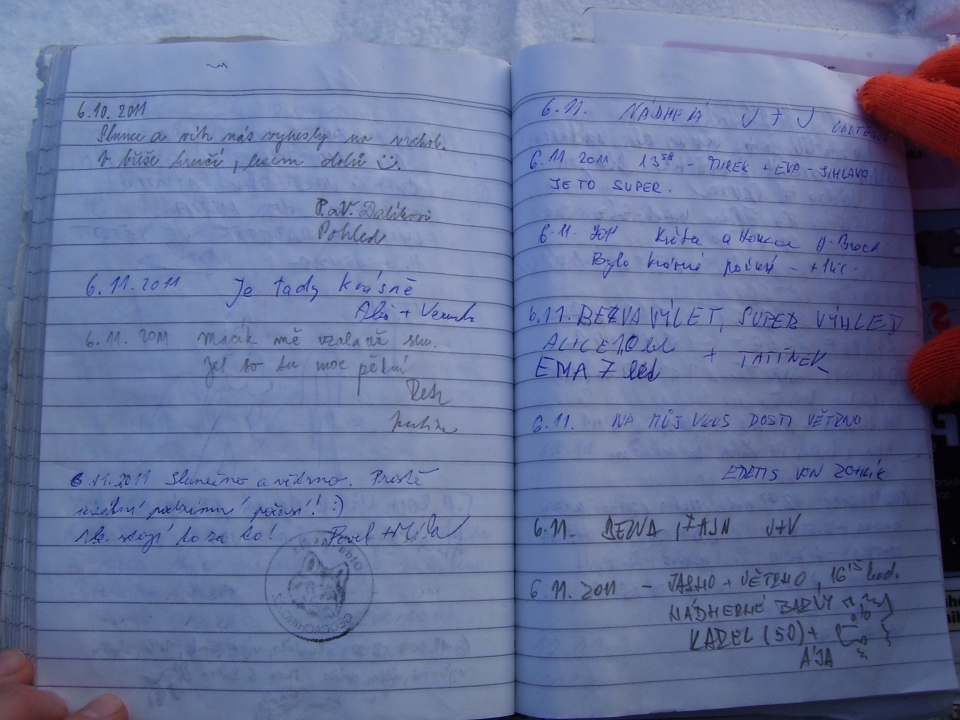 6.10.2011
Slunce a vítr nás vynesly na vrchol.
V břiše kručí, lesem dolů
P. a V. Dalíkovi
Pohled
6.11.2011 Je tady krásně
Aleš +
6.11.2011 mě vzala
Je to tu moc pěkný
Petr
6.11.2011 Slunečno a větrno. Prostě
ideální podzimní počasí! :)
to za to! Pavel
6.11. NÁDHERA J + J
6.11 2011 13 - TUREK + EVA - JIHLAVA
JE TO SUPER.
6.11. 2011 Květa a Honza H. Brod
Bylo krásné počasí -
6.11. BEZVA VÝLET, SUPER VÝHLED
ALICE 10 let + TATÍNEK
EMA 7 let
6.11. NA MŮJ VKUS DOSTI VĚTRNO
VON
6.11. BEZVA, J+V
6.11.2011 - JASNO + VĚTRNO, 16 15 hod.
NÁDHERNÉ BARVY
KAREL (50) +
AJA